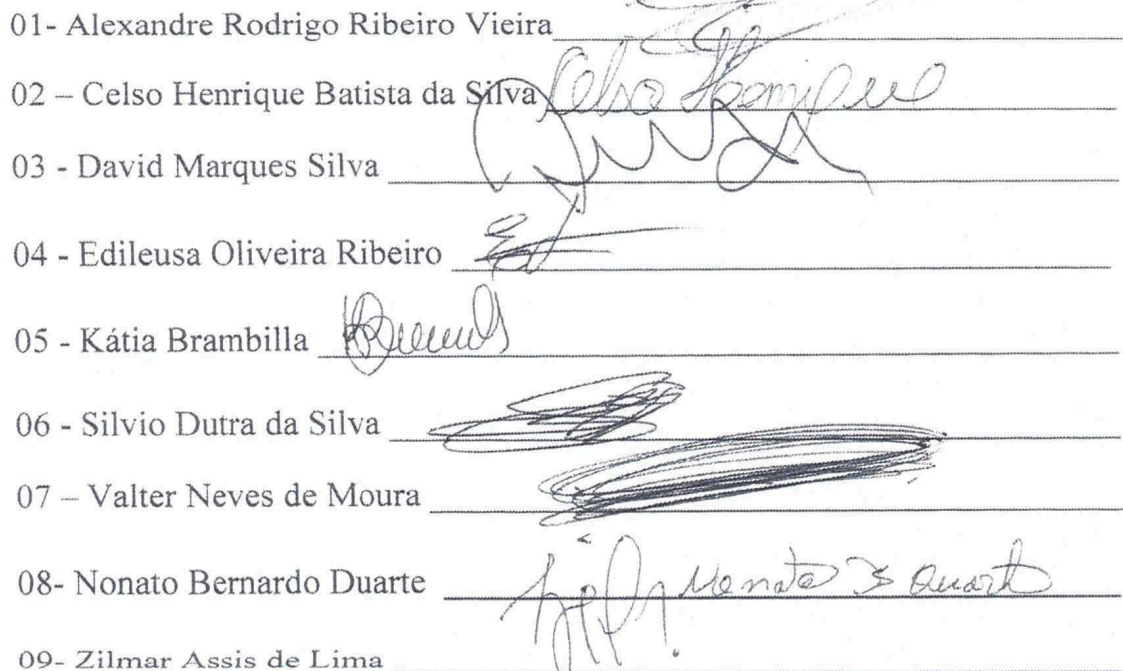 01- Alexandre Rodrigo Ribeiro Vieira
02 – Celso Henrique Batista da Silva Celso Henrique
03 - David Marques Silva
04 - Edileusa Oliveira Ribeiro
05 - Kátia Brambilla
06 - Silvio Dutra da Silva
07 – Valter Neves de Moura
08- Nonato Bernardo Duarte Nonato B Duarte
09- Zilmar Assis de Lima